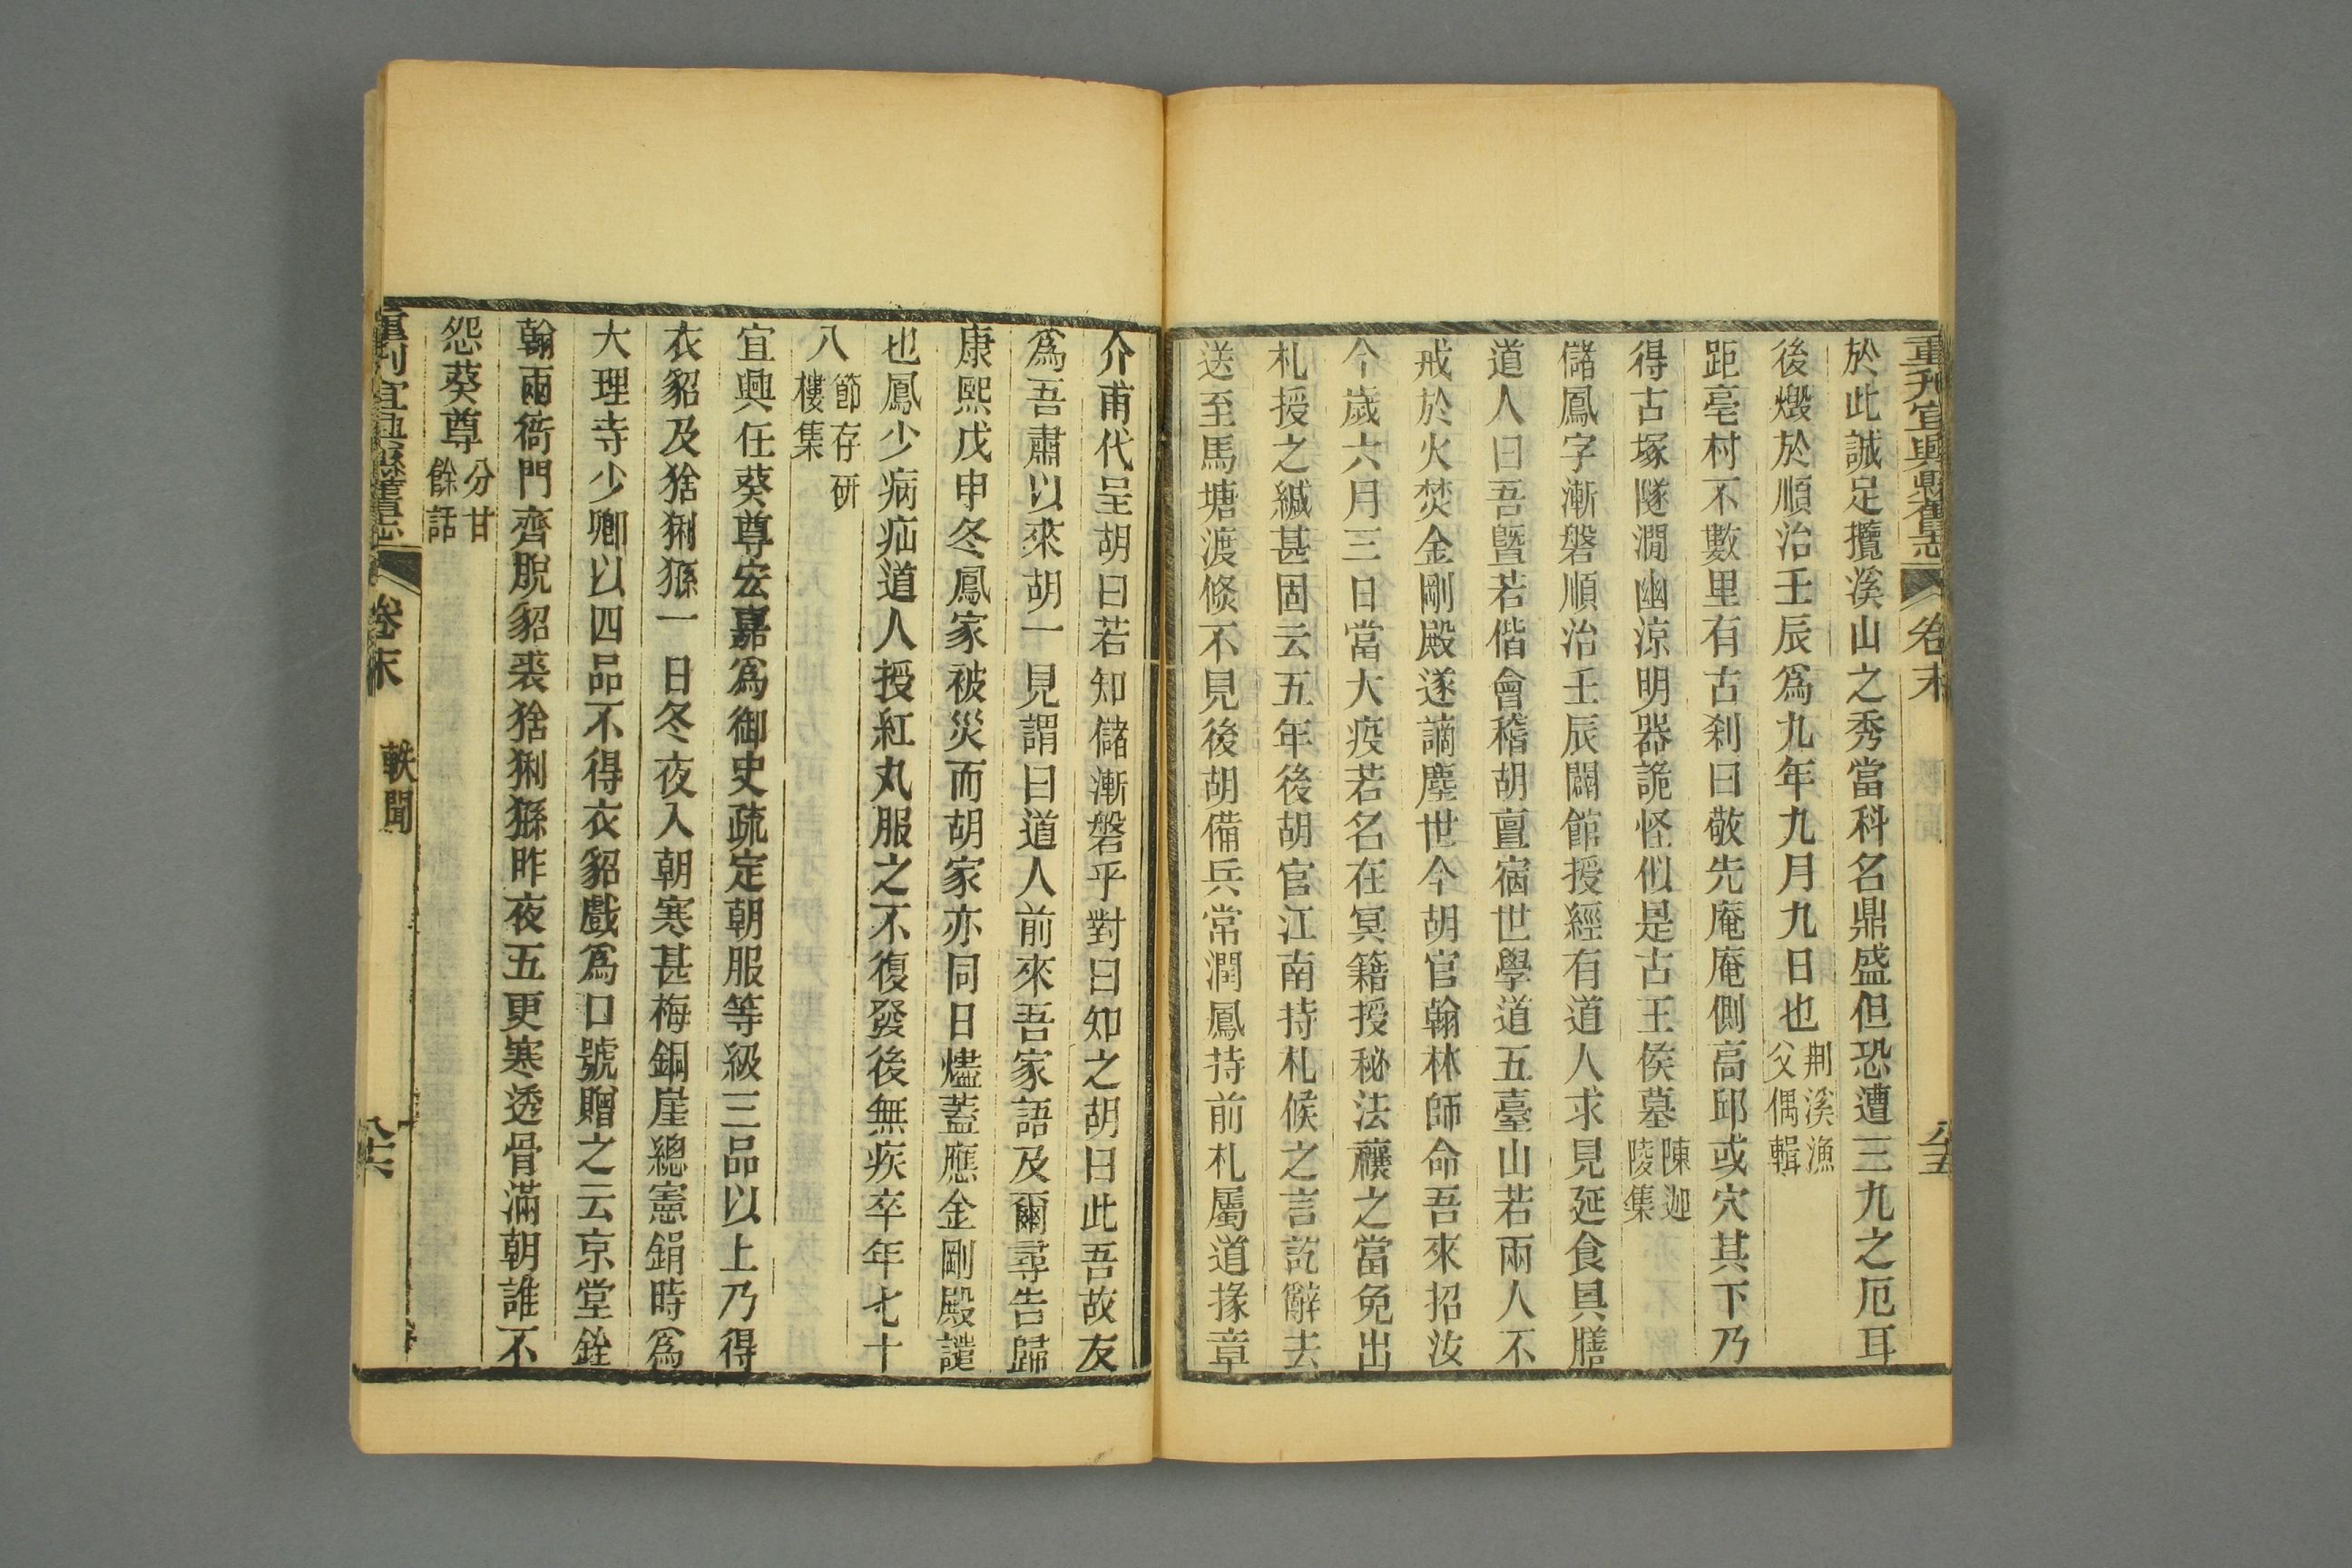 重刊宜興縣舊志 卷末 八十五
於此誠足攬溪山之秀當科名鼎盛但恐遭三九之厄耳
後燬於順治壬辰爲九年九月九日也荆溪漁父偶輯
距亳村不數里有古刹曰敬先庵庵側高邱或穴其下乃
得古塚隧澗幽涼明器詭怪似是古王侯墓陳迦陵集
儲鳳字漸磐順治壬辰闢館授經有道人求見延食具膳
道人曰吾曁若偕會稽胡亶宿世學道五臺山若兩人不
戒於火焚金剛殿遂謫塵世今胡官翰林師命吾來招汝
今歲六月三日當大疫若名在冥籍授秘法禳之當免出
札授之緘甚固云五年後胡官江南持札候之言訖辭去
送至馬塘渡倐不見後胡備兵常潤鳳持前札屬道掾章
介甫代呈胡曰若知儲漸磐乎對曰知之胡曰此吾故友
爲吾肅以來胡一見謂曰道人前來吾家語及爾尋告歸
康熙戊申冬鳳家被災而胡家亦同日燼蓋應金剛殿譴
也鳳少病疝道人授紅丸服之不復發後無疾卒年七十
八節存研樓集
宜興任葵尊宏嘉爲御史疏定朝服等級三品以上乃得
衣貂及猞猁猻一日冬夜入朝寒甚梅銅崖總憲鋗時爲
大理寺少卿以四品不得衣貂戲爲口號贈之云京堂銓
翰兩衙門齊脫貂裘猞猁猻昨夜五更寒透骨滿朝誰不
怨葵尊分甘餘話
重刊宜興縣舊志 卷末 軼聞 八十六